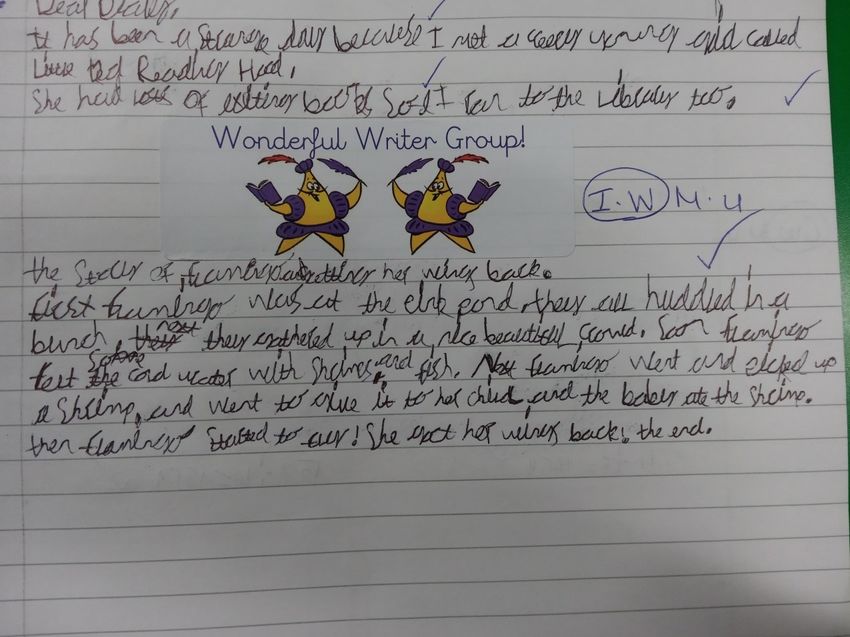 Dear Diary,
It has been a strange day because I met a very young girl called
Little Red Reading Hood.
She had lots of exiting books So I ran to the Library too.
Wonderful Writer Group!
I.W M.U
the Story of flamingo getting her wings back.
first flamingo was at the pond, they all huddled in a
bunch, next they gathered up in a nice beautiful crowd. Soon flamingo
felt the cord water with Shrimps and fish. Next flamingo went and picked up
a Shrimp, and went to give it to her child and the babey ate the Shrimp.
then flamingo Started to cry! She got her wings back! the end.